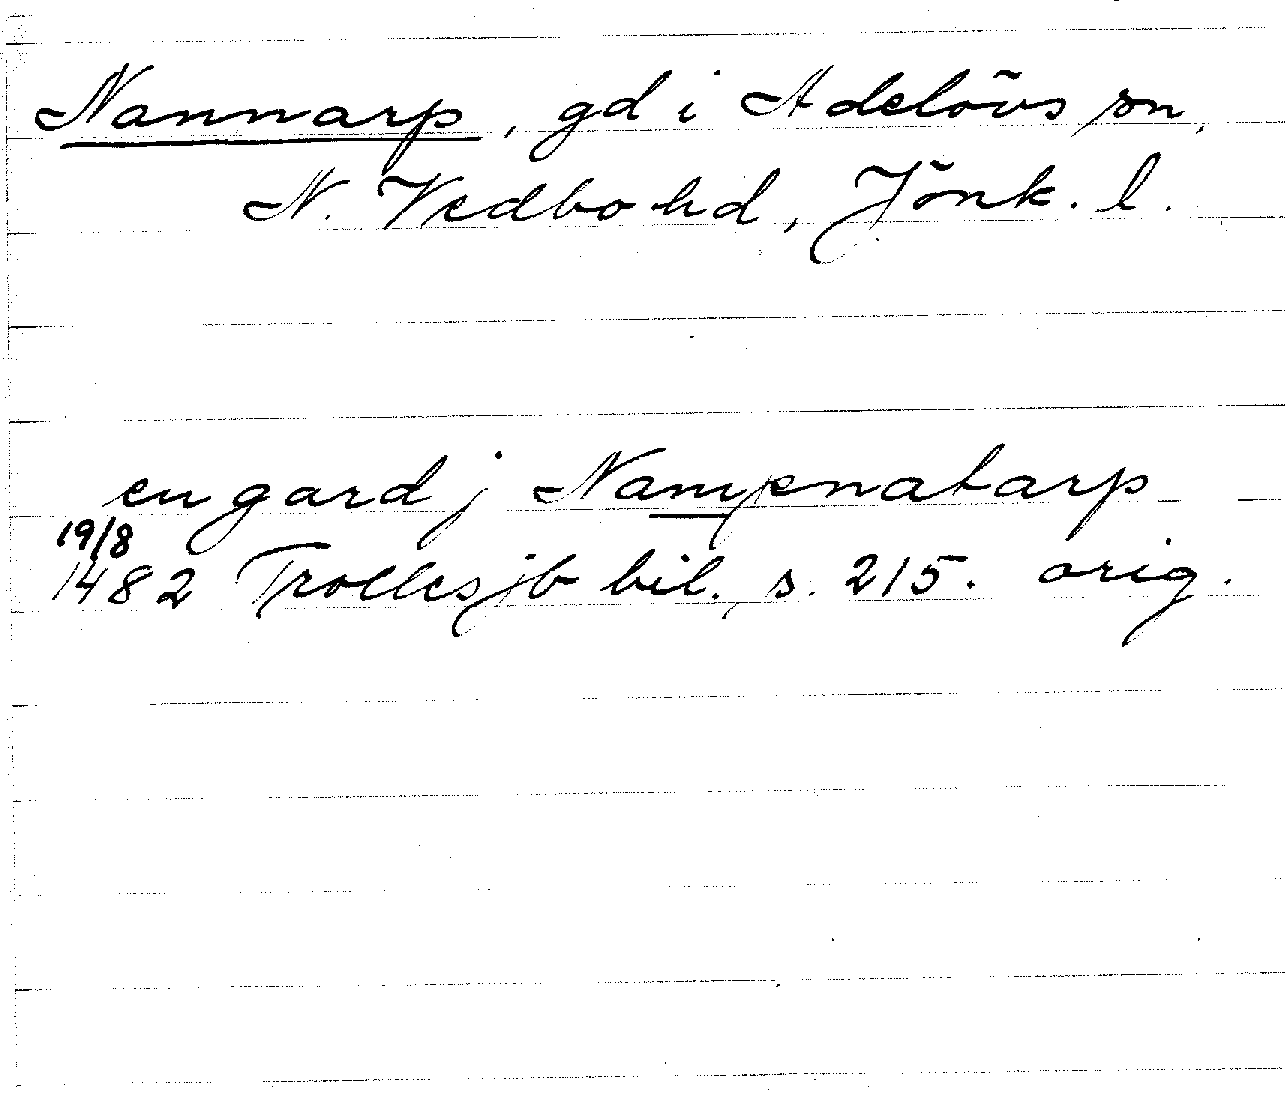 Nannarp, gd i Adelövs sn,
N. Vedbo hd, Jönk. l.
en gard j Nampnatarp
19/8
1482 Trollesjb bil. s. 215. orig.